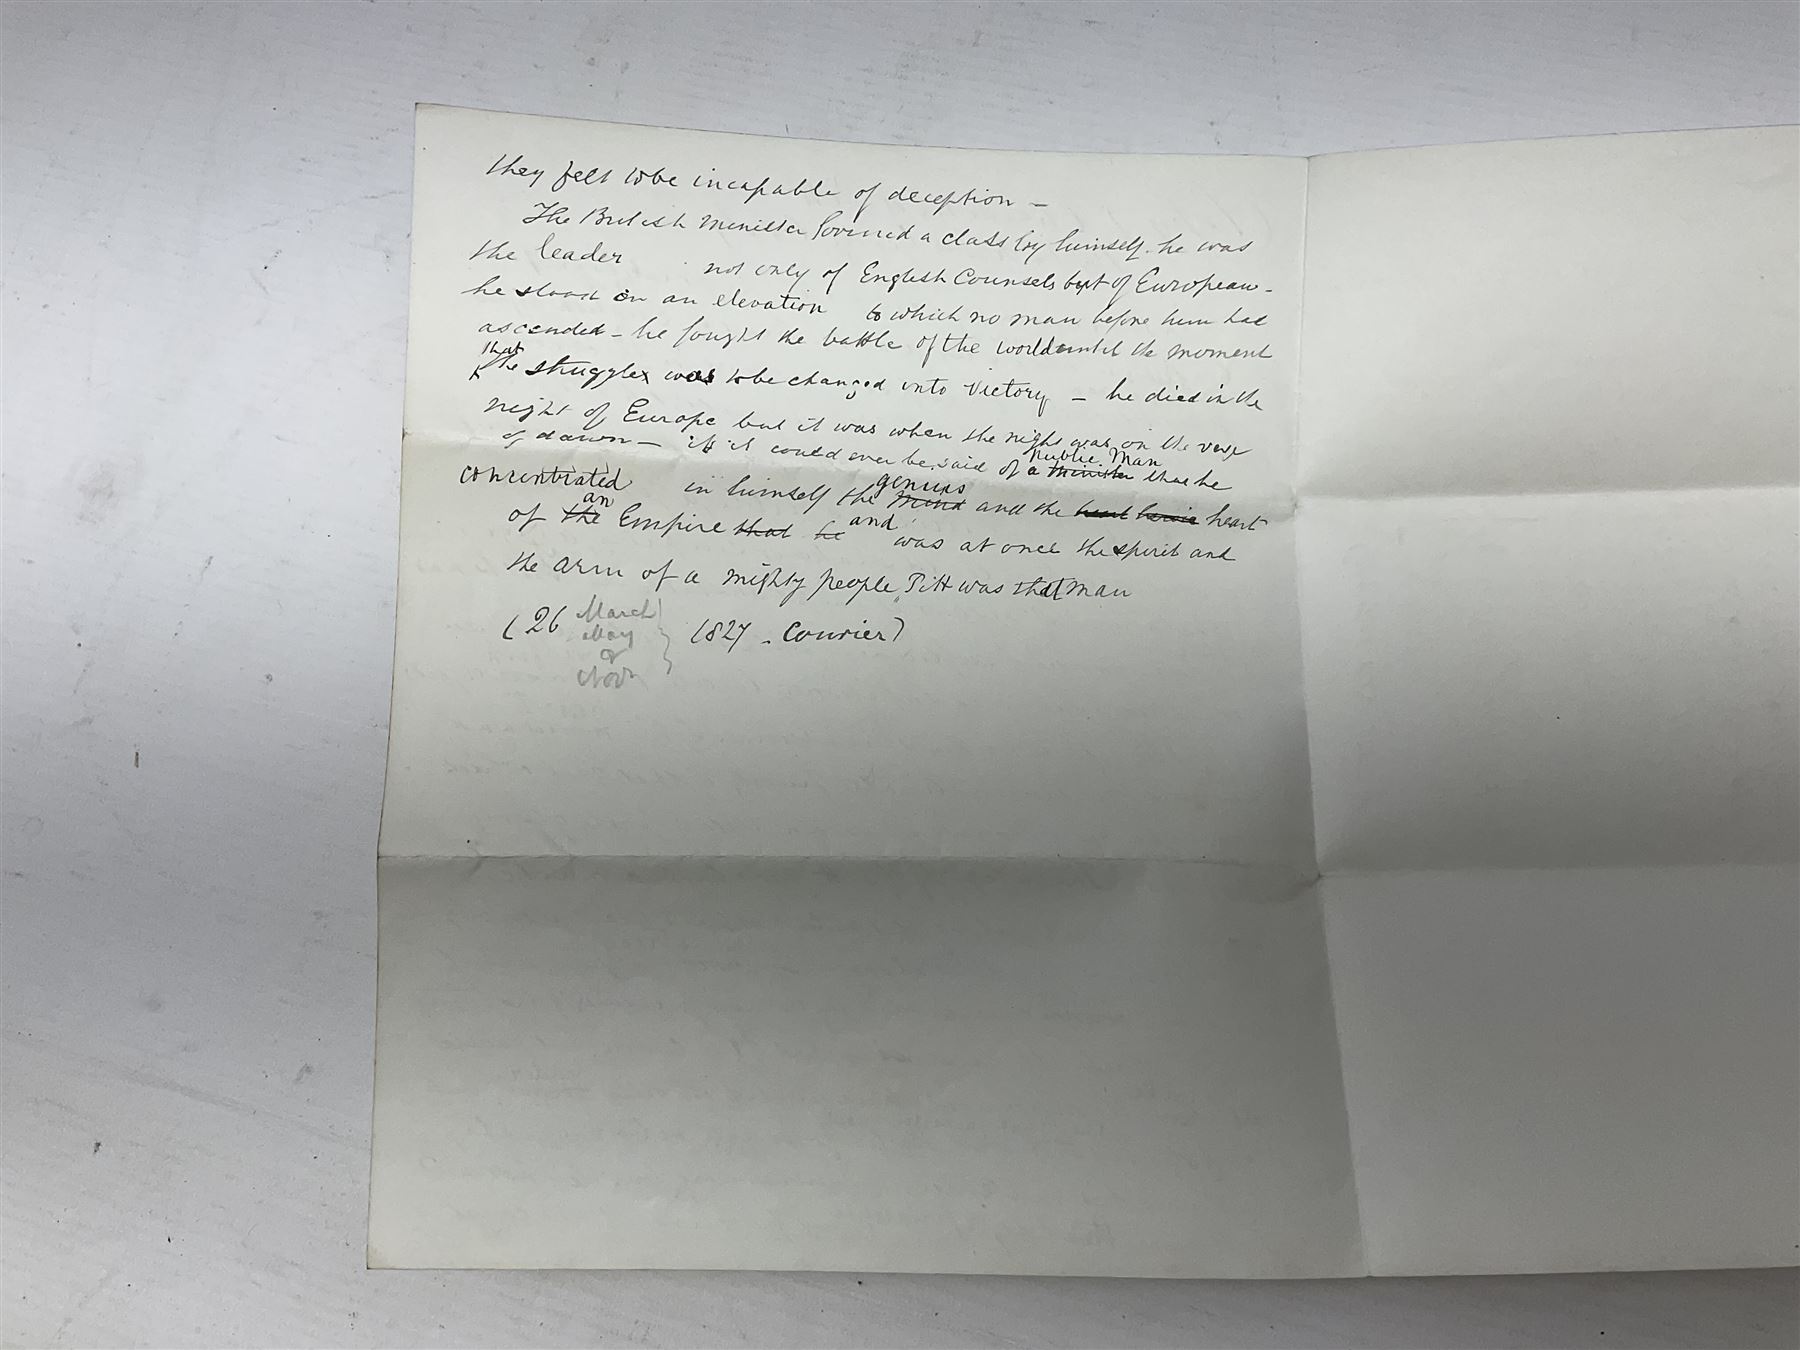 they felt to be incapable of deception -
The British Minister formed a class by himself. he was
the leader not only of English Counsels but of European -
he stood on an elevation to which no man before him had
ascended - he fought the battle of the world until the moment
that
the struggle was to be changed into Victory - he died in the
night of Europe but it was when the night was on the verge
of dawn - if it could ever be said of a Minister that he
Public Man
concentrated in himself the Mind and the heart
genius
of the Empire that he and was at once the spirit and
an
the arm of a mighty people, Pitt was that man
(26 March 1827 - Courier)
May
or
Novr